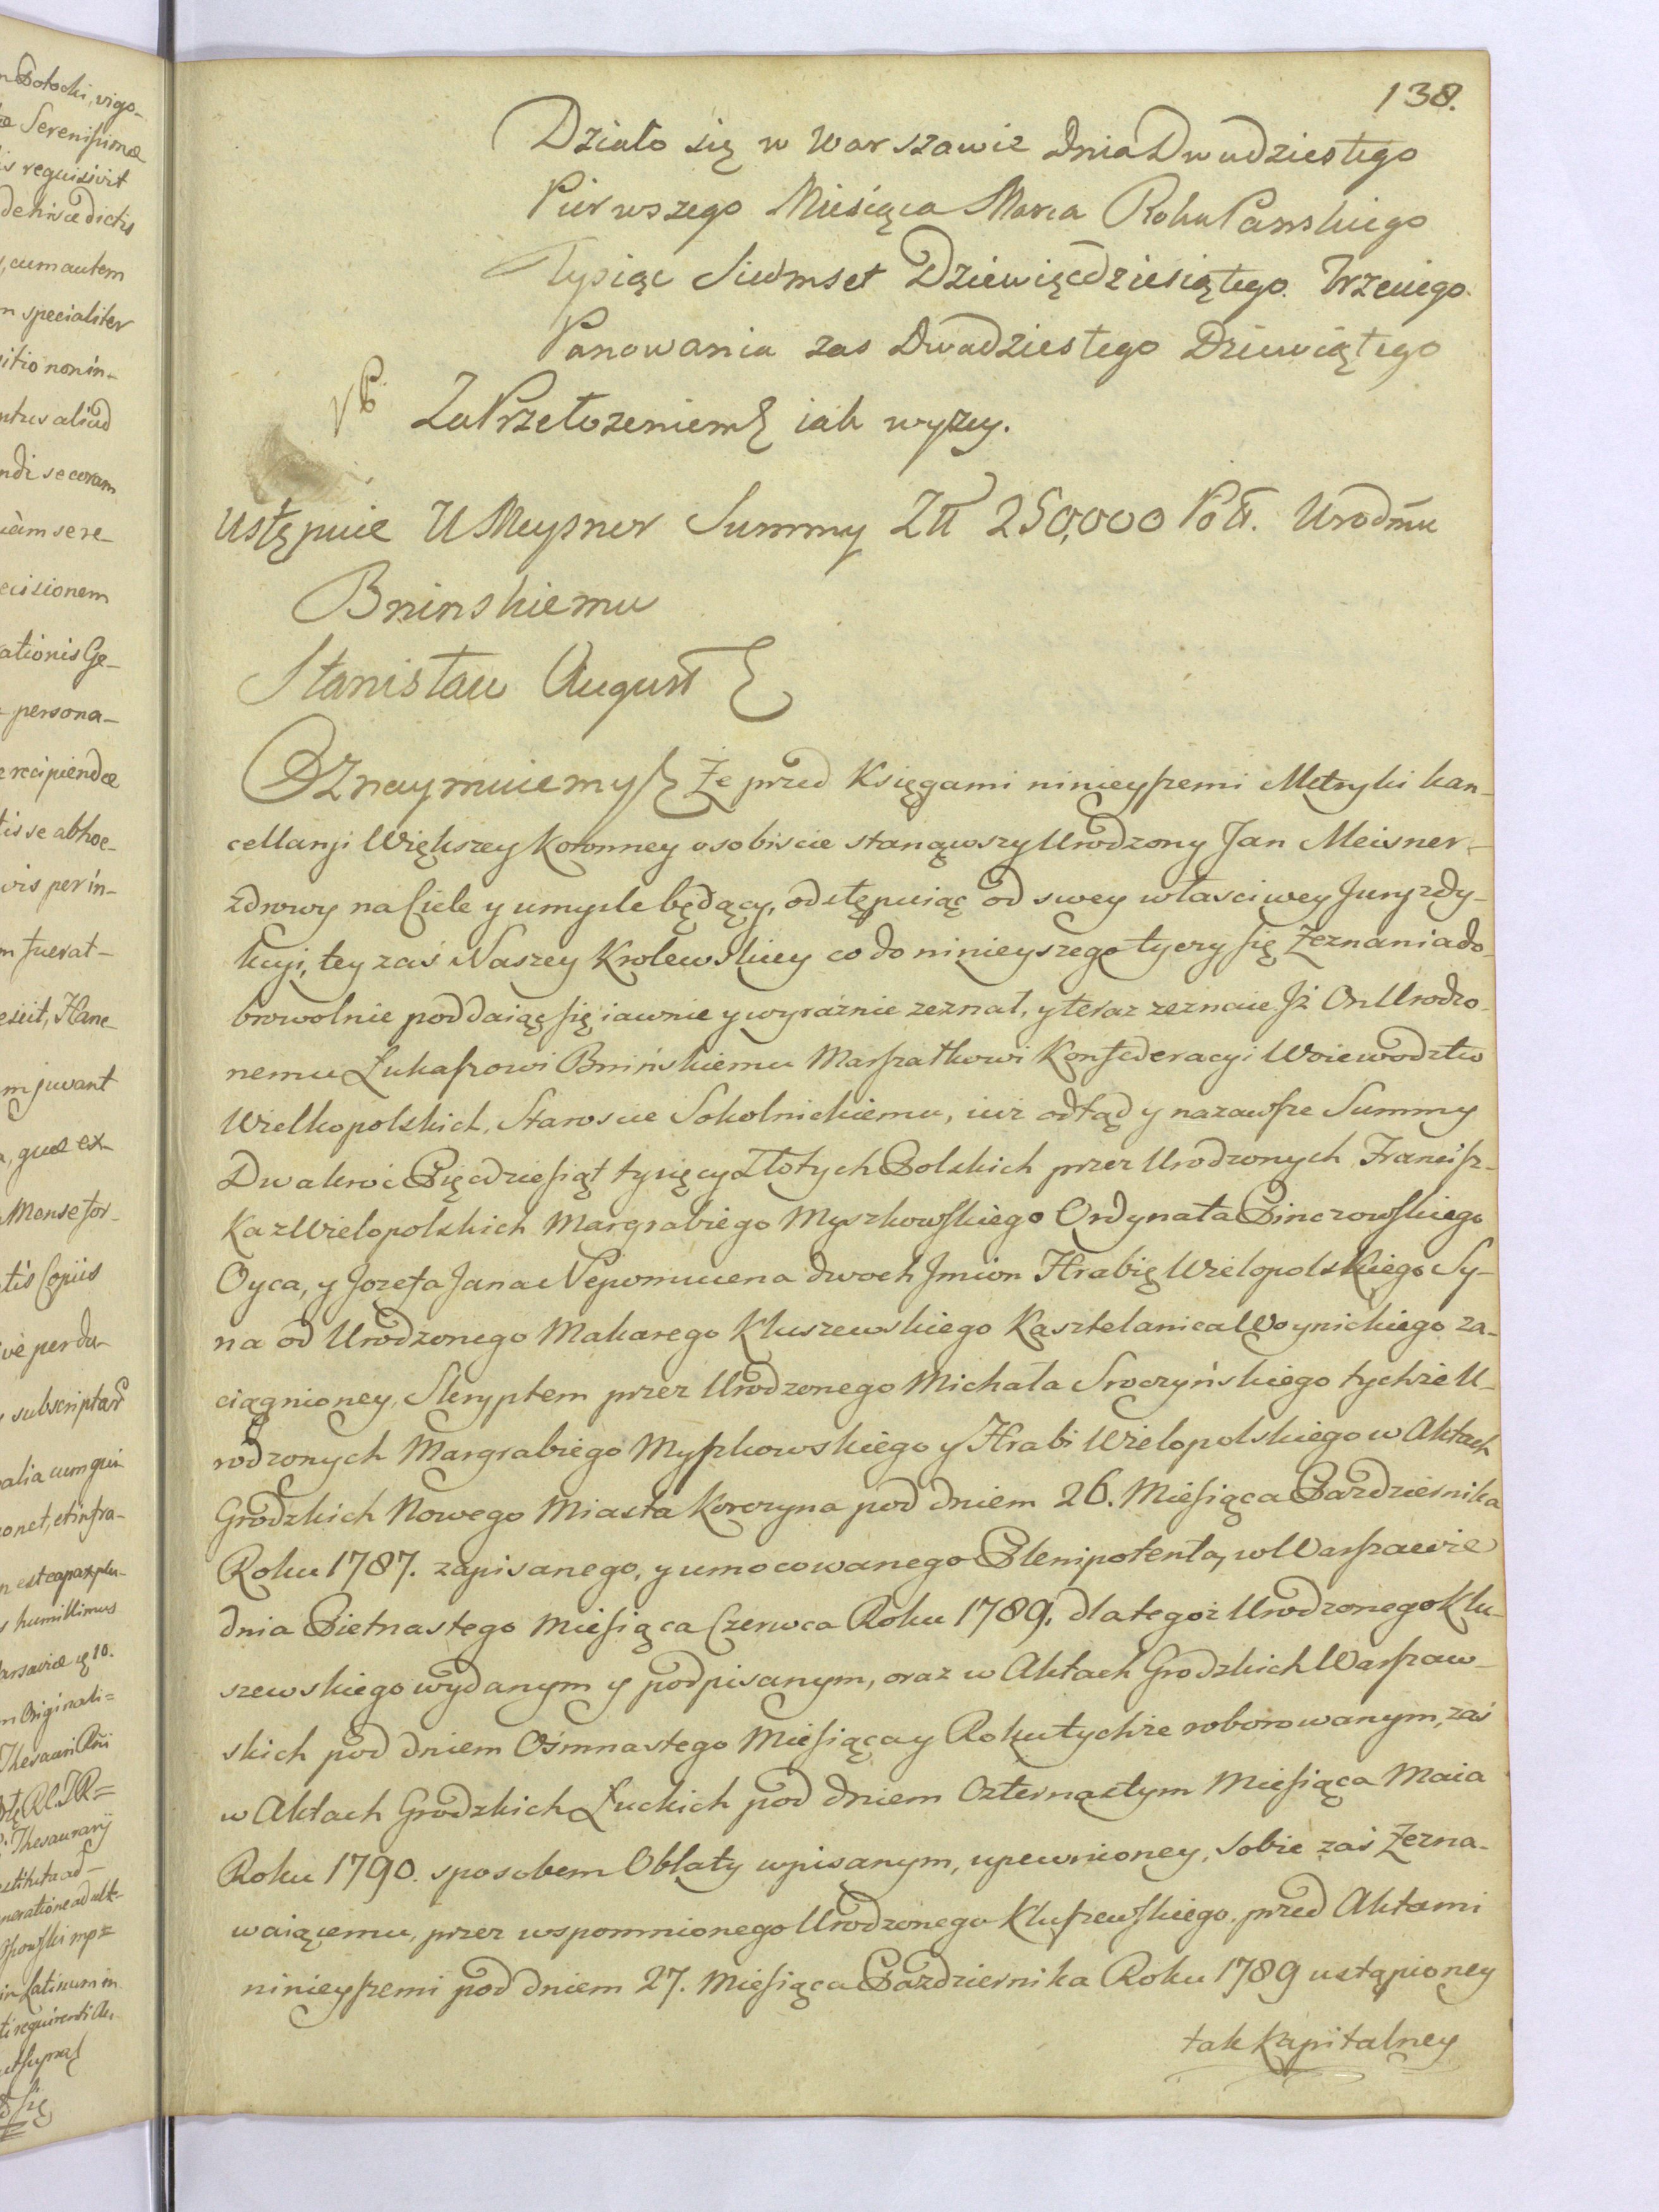 138.
Działo się w Warszawie dnia Dwudziestego
Pierwszego Miesiąca Marca Roku Panskiego
Tysiąc Siedmset Dziewięćdziesiątego Trzeciego
Panowania zas Dwudziestego Dziewiątego
Za Przełozeniem iak wyzey.
Ustępuie U Meysner Summy Złł 250,000 Poll. Urodmu
Bninskiemu
Stanisław August
Oznaymuiemy Ze przed Księgami ninieyszemi Metryki kan-
cellaryi Większey Koronney osobiscie stanąwszy Urodzony Jan Meisner
zdrowy na Ciele y umysle będący, odstępuiąc od swey własciwey Juryzdy-
kcyi, tey zaś Naszey Krolewskiey co do ninieyszego tyczy się Zeznania do-
browolnie poddaiąc się iawnie y wyraźnie zeznał, y teraz zeznaie Jż On Urodzo-
nemu Łukaszowi Bnińskiemu Marszałkowi Konfederacyi Woiewodztw
Wielkopolskich, Staroscie Sokolnickiemu, iuż odtąd y nazawsze Summy
Dwakroć Pięcdziesiąt tysięcy Złotych Polskich przez Urodzonych Francisz-
ka z Wielopolskich Margrabiego Myszkowskiego Ordynata Pinczowskiego
Oyca, y Jozefa Jana Nepomucena dwoch Jmion Hrabię Wielopolskiego Sy-
na od Urodzonego Makarego Kluszewskiego Kasztelanica Woynickiego za-
ciągnioney, Skryptem przez Urodzonego Michała Sroczyńskiego tychże U-
rodzonych Margrabiego Myszkowskiego y Hrabi Wielopolskiego w Aktach
Grodzkich Nowego Miasta Korczyna pod dniem 26. Miesiąca Pazdziernika
Roku 1787. zapisanego, y umocowanego Plenipotenta, w Warszawie
dnia Pietnastego Miesiąca Czerwca Roku 1789. dla tegoż Urodzonego Klu-
szewskiego wydanym y podpisanym, oraz w Aktach Grodzkich Warszaw-
skich pod dniem Ośmnastego Miesiąca y Roku tychże roborowanym, zaś
w Aktach Grodzkich Łuckich pod dniem Czternastym Miesiąca Maia
Roku 1790. sposobem Oblaty wpisanym, upewnioney, Sobie zaś Zezna-
waiącemu, przez wspomnionego Urodzonego Kluszewskiego przed Aktami
ninieyszemi pod dniem 27. Miesiąca Pazdziernika Roku 1789 ustąpioney
tak kapitalney